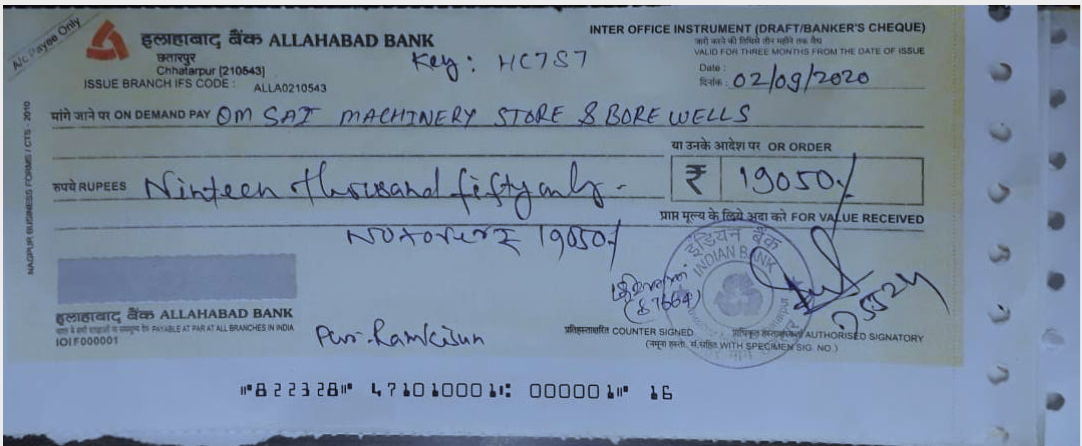 A/C Payee Only
इलाहाबाद बैंक ALLAHABAD BANK
छतरपुर
Chhatarpur [210543]
ISSUE BRANCH IFS CODE : ALLA0210543
Key: HC7S7
INTER OFFICE INSTRUMENT (DRAFT/BANKER'S CHEQUE)
जारी करने की तिथि से तीन महीने तक वैध
VALID FOR THREE MONTHS FROM THE DATE OF ISSUE
Date :
दिनांक : 02/09/2020
मांगे जाने पर ON DEMAND PAY OM SAI MACHINERY STORE & BORE WELLS
या उनके आदेश पर OR ORDER
रुपये RUPEES Ninteen thousand fifty only -
₹ 19050/-
प्राप्त मूल्य के लिये अदा करे FOR VALUE RECEIVED
19050/-
इंडियन बैंक
INDIAN BANK
इलाहाबाद बैंक ALLAHABAD BANK
PAYABLE AT PAR AT ALL BRANCHES IN INDIA
IOIF000001
Pur: Ramkisun
प्रतिहस्ताक्षरित COUNTER SIGNED
प्राधिकृत हस्ताक्षरकर्ता AUTHORISED SIGNATORY
(नमूना हस्ता. सं. सहित WITH SPECIMEN SIG. NO.)
NAGPUR BUSINESS FORMS / CTS - 2010
⑈822328⑈ 471010001⑆ 000001⑈ 16